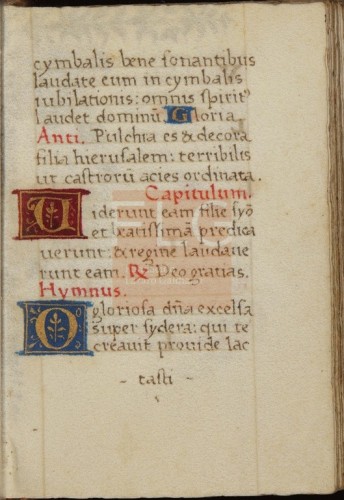 cymbalis bene sonantibus
laudate eum in cymbalis
iubilationis: omnis spirit⁹
laudet dominū. Gloria.
Anti. Pulchra es & decora
filia hierusalem: terribilis
ut castrorū acies ordinata.
Capitulum.
Uiderunt eam filie syō
et beatissimā predica
uerunt: & regine laudaue
runt eam. ℞ Deo gratias.
Hymnus.
O gloriosa dña excelsa
super sydera: qui te
creauit prouide lac
- tasti -